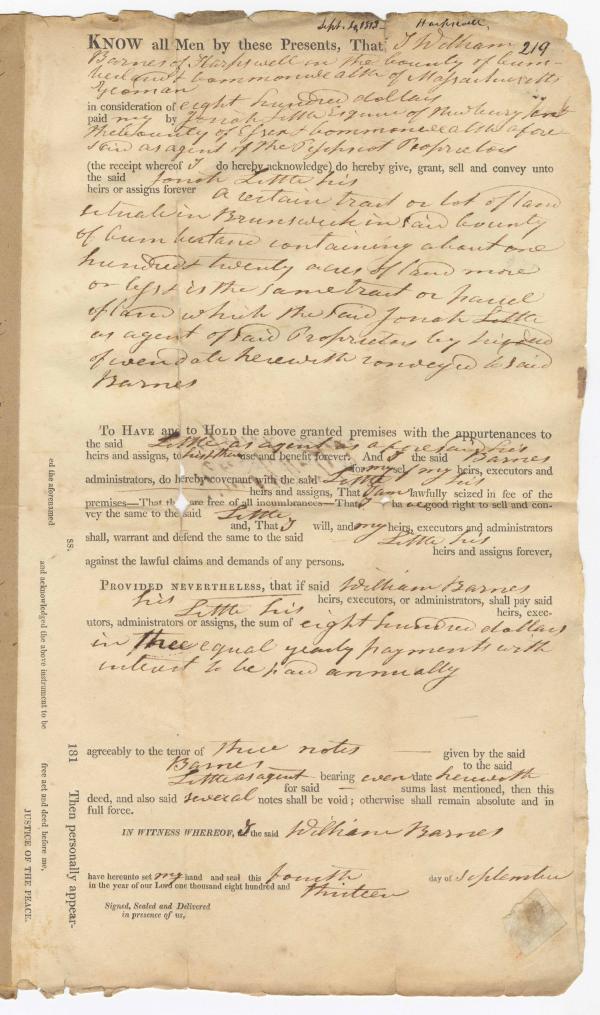 Sept. 4, 1813 - Harpswell,
KNOW all Men by these Presents, That I William 219
Barnes of Harpswell in the County of Cum-
berland & Commonwealth of Massachusetts
Yeoman
in consideration of eight hundred dollars
paid my by Jonah Little Esquire of Newbury in
the County of Essex & Commonwealth afore
said as agent of the Pejepscot Proprietors
(the receipt whereof I do hereby acknowledge) do hereby give, grant, sell and convey unto
the said Jonah Little his
heirs or assigns forever a certain tract or lot of land
situate in Brunswick in said County
of Cumberland containing about one
hundred & twenty acres of land more
or less & is the same tract or parcel
of land which the said Jonah Little
as agent of said Proprietors by his deed
of even date herewith conveyed to said
Barnes
To HAVE and to HOLD the above granted premises with the appurtenances to
the said Little as agent as aforesaid his
heirs and assigns, to his & their use and benefit forever. And I the said Barnes
for my self my heirs, executors and
administrators, do hereby covenant with the said Little his
heirs and assigns, That I am lawfully seized in fee of the
premises—That they are free of all incumbrances—That I have good right to sell and con-
vey the same to the said Little
and, That I will, and my heirs, executors and administrators
shall, warrant and defend the same to the said Little his
heirs and assigns forever,
against the lawful claims and demands of any persons.
PROVIDED NEVERTHELESS, that if said William Barnes
his heirs, executors, or administrators, shall pay said
Little his heirs, exec-
utors, administrators or assigns, the sum of eight hundred dollars
in three equal yearly payments with
interest to be paid annually
agreeably to the tenor of three notes given by the said
Barnes to the said
Little as agent bearing even date herewith
for said sums last mentioned, then this
deed, and also said several notes shall be void; otherwise shall remain absolute and in
full force.
IN WITNESS WHEREOF, I the said William Barnes
have hereunto set my hand and seal this fourth day of September
in the year of our Lord one thousand eight hundred and thirteen
Signed, Sealed and Delivered
in presence of us,
ss. 181 Then personally appear-
ed the aforenamed
and acknowledged the above instrument to be free act and deed before me,
JUSTICE OF THE PEACE.